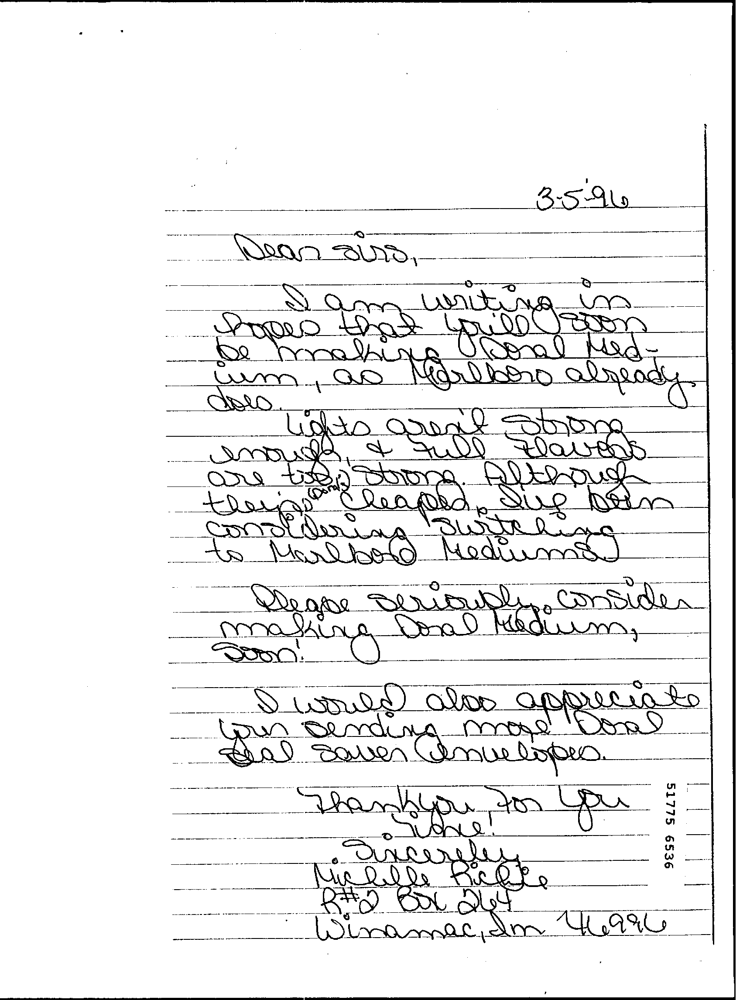 3-5-96
Dear sirs,
I am writing in
hopes that you'll soon
be making Doral Med-
ium, as Marlboro already
does.
Lights aren't strong
enough, & Full Flavors
are too strong. Although
(Doral)
cheaper, I've been
considering switching
to Marlboro Mediums.
Please seriously consider
making Doral Medium,
soon!
I would also appreciate
your sending more Doral
Seal saver envelopes.
Thankyou For You
Time!
Sincereley
Michelle
R#2 Box 264
Winamac, In 46996
51775 6536